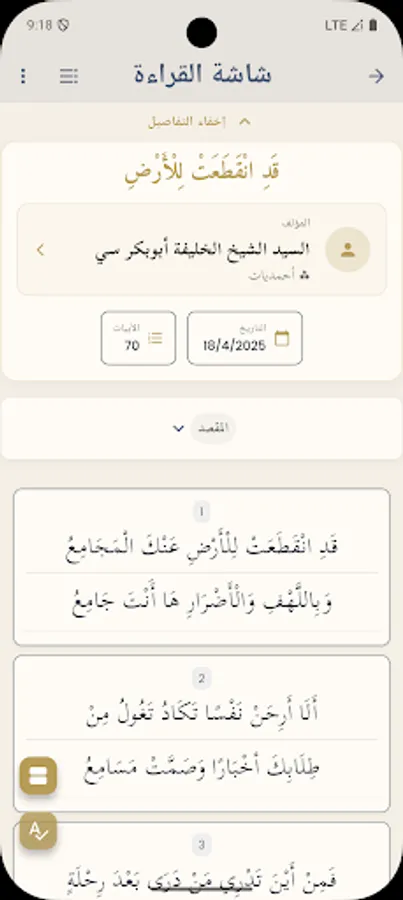 9:18
LTE
شاشة القراءة
إخفاء التفاصيل
قَدِ انْقَطَعَتْ لِلْأَرْضِ
المؤلف
السيد الشيخ الخليفة أبوبكر سي
أحمديات
التاريخ
18/4/2025
الأبيات
70
المقصد
1
قَدِ انْقَطَعَتْ لِلْأَرْضِ عَنْكَ الْمَجَامِعُ
وَبِاللَّهْفِ وَالْأَضْرَارِ هَا أَنْتَ جَامِعُ
2
أَلَا أَرِحَنْ نَفْسًا تَكَادُ تَغُولُ مِنْ
طِلَابِكَ أَخْبَارًا وَصَمَّتْ مَسَامِعُ
3
فَمِنْ أَيْنَ تَدْرِي مَنْ دَرَى بَعْدَ رِحْلَةٍ